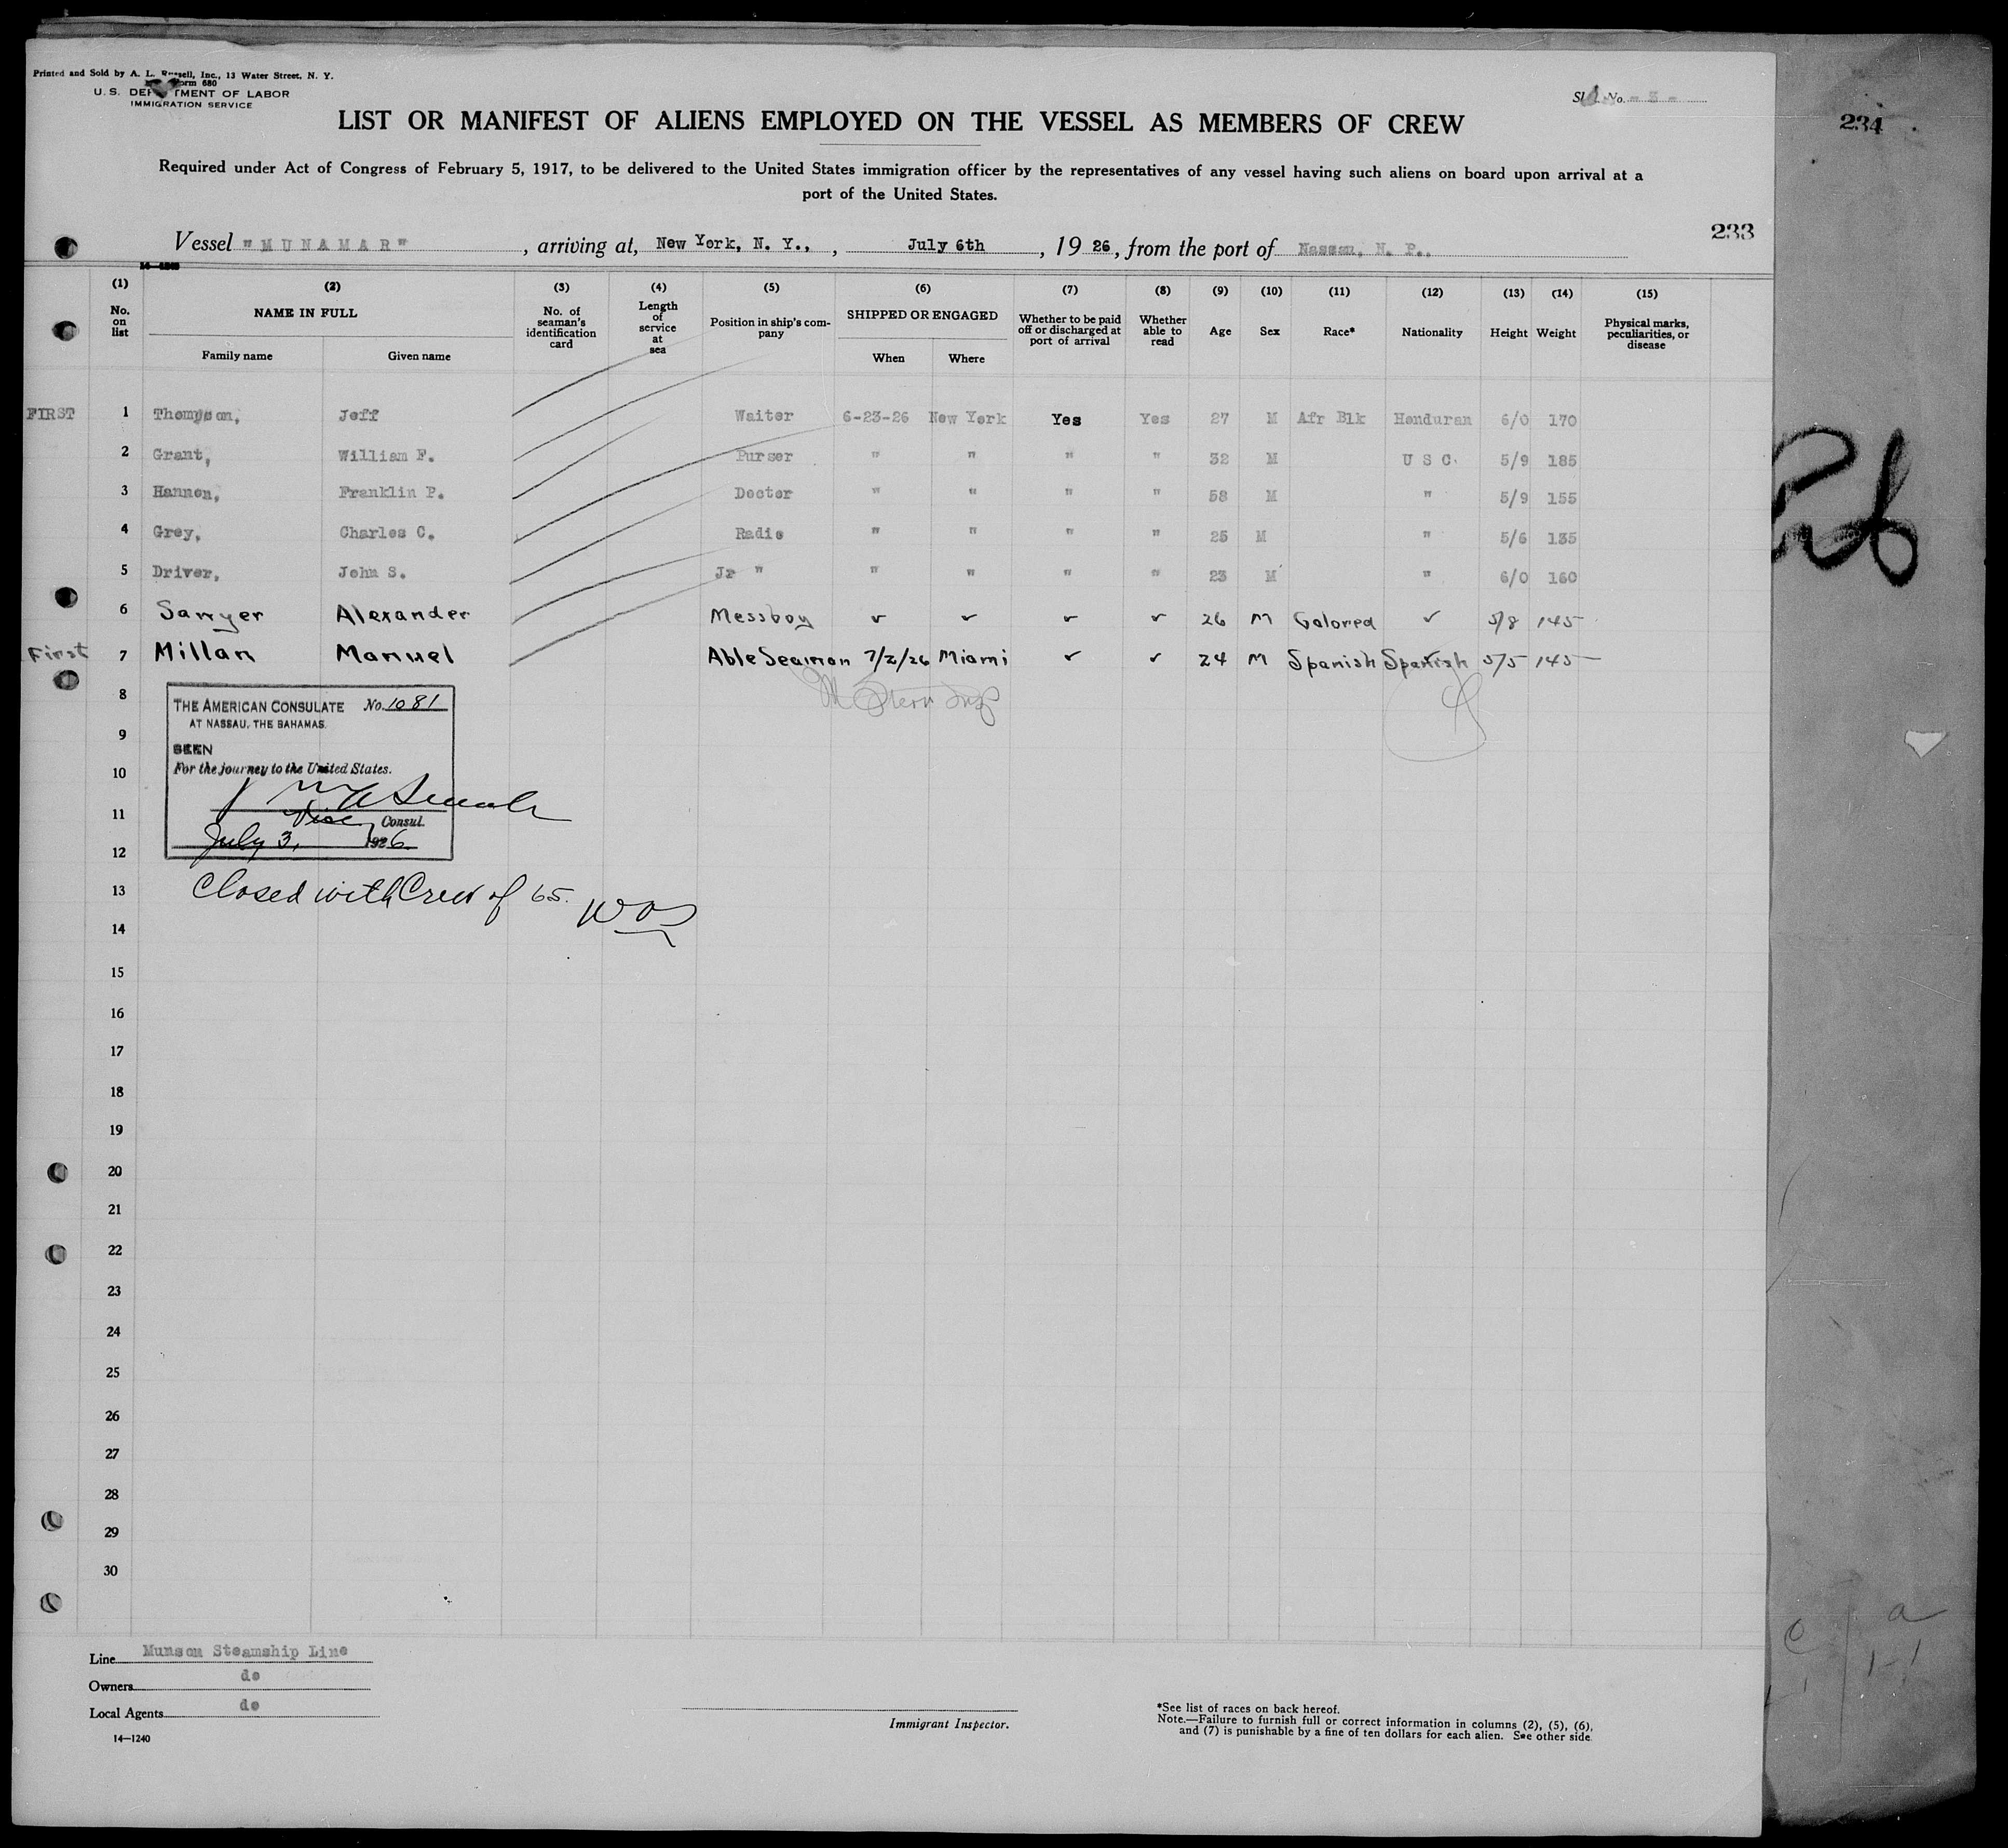 Printed and Sold by A. L. Russell, Inc., 13 Water Street, N. Y.
Form 680
U. S. DEPARTMENT OF LABOR
IMMIGRATION SERVICE
No. - 3 -
234
LIST OR MANIFEST OF ALIENS EMPLOYED ON THE VESSEL AS MEMBERS OF CREW
Required under Act of Congress of February 5, 1917, to be delivered to the United States immigration officer by the representatives of any vessel having such aliens on board upon arrival at a
port of the United States.
233
Vessel "MUNAMAR", arriving at, New York, N. Y., , July 6th, 19 26, from the port of Nassau, N. P..
(1) (2) (3) (4) (5) (6) (7) (8) (9) (10) (11) (12) (13) (14) (15)
No. on list NAME IN FULL No. of seaman's identification card Length of service at sea Position in ship's company SHIPPED OR ENGAGED Whether to be paid off or discharged at port of arrival Whether able to read Age Sex Race* Nationality Height Weight Physical marks, peculiarities, or disease
Family name Given name When Where
FIRST 1 Thompson, Jeff Waiter 6-23-26 New York Yes Yes 27 M Afr Blk Honduran 6/0 170
2 Grant, William F. Purser " " " " 32 M U S C. 5/9 185
3 Hannon, Franklin P. Doctor " " " " 58 M " 5/9 155
4 Grey, Charles C. Radio " " " " 25 M " 5/6 135
5 Driver, John S. Jr " " " " " 23 M " 6/0 160
6 Sawyer Alexander Messboy ✓ ✓ ✓ ✓ 26 M Colored ✓ 5/8 145
First 7 Millan Manuel Able Seaman 7/2/26 Miami ✓ ✓ 24 M Spanish Spanish 5/5 145
8
THE AMERICAN CONSULATE No. 1081
AT NASSAU, THE BAHAMAS.
9
SEEN
10
For the journey to the United States.
11
Vice Consul.
July 3, 1926
12
13
Closed with Crew of 65.
14
15
16
17
18
19
20
21
22
23
24
25
26
27
28
29
30
Line Munson Steamship Line
Owners do
Local Agents do
14—1240
Immigrant Inspector.
*See list of races on back hereof.
Note.—Failure to furnish full or correct information in columns (2), (5), (6),
and (7) is punishable by a fine of ten dollars for each alien. See other side.